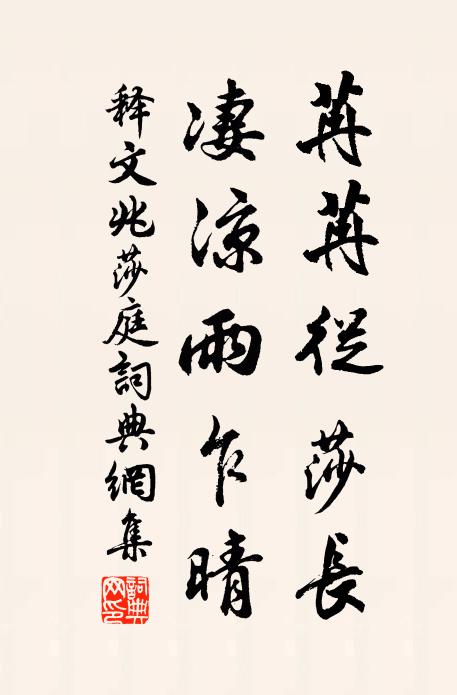 苒苒從莎長
凄涼雨乍晴
释文兆莎庭詞典網集
詞典网印